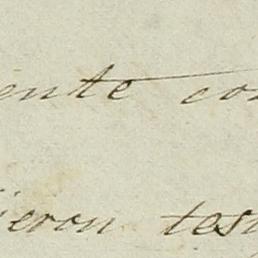 ente co
ieron tes